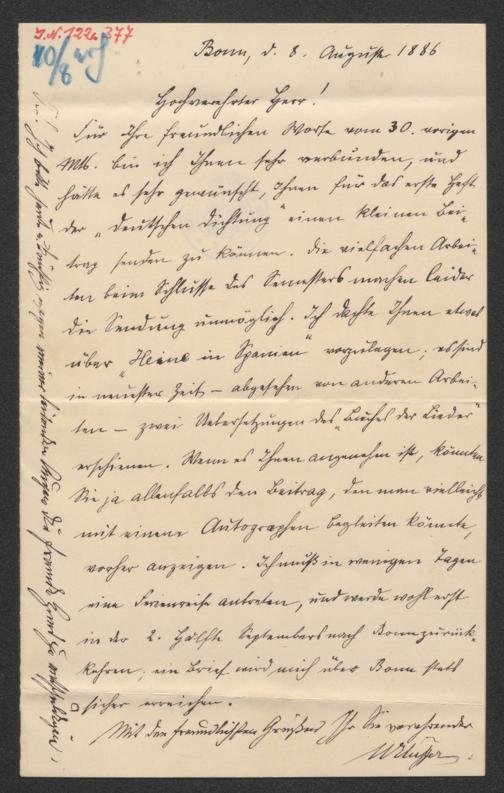 J.N. 122.377
10/8
Bonn, d. 8. Auguste 1886
Hochverehrter Herr!
Für Ihre freundlichen Worte vom 30. vorigen
Mts. bin ich Ihnen sehr verbunden, und
hätte es sehr gewünscht, Ihnen für das erste Heft
der „Deutschen Dichtung" einen kleinen Bei-
trag senden zu können. Die vielfachen Arbei-
ten beim Schlusse des Semesters machen leider
die Sendung unmöglich. Ich dachte Ihnen etwas
über „Heine in Spanien" vorzulegen; es sind
in neuester Zeit – abgesehen von anderen Arbei-
ten – zwei Uebersetzungen des „Buches der Lieder"
erschienen. Wenn es Ihnen angenehm ist, könnten
Sie ja allenfalls den Beitrag, den man vielleicht
mit einem Autographen begleiten könnte,
vorher anzeigen. Ich muß in wenigen Tagen
eine Ferienreise antreten, und werde wohl erst
in der 2. Hälfte Septembers nach Bonn zurück-
kehren; ein Brief wird mich über Bonn stets
sicher erreichen.
Mit den freundlichsten Grüßen Ihr Sie verehrender
Ich bitte meiner leidenden Augen die fremde Hand zu entschuldigen.